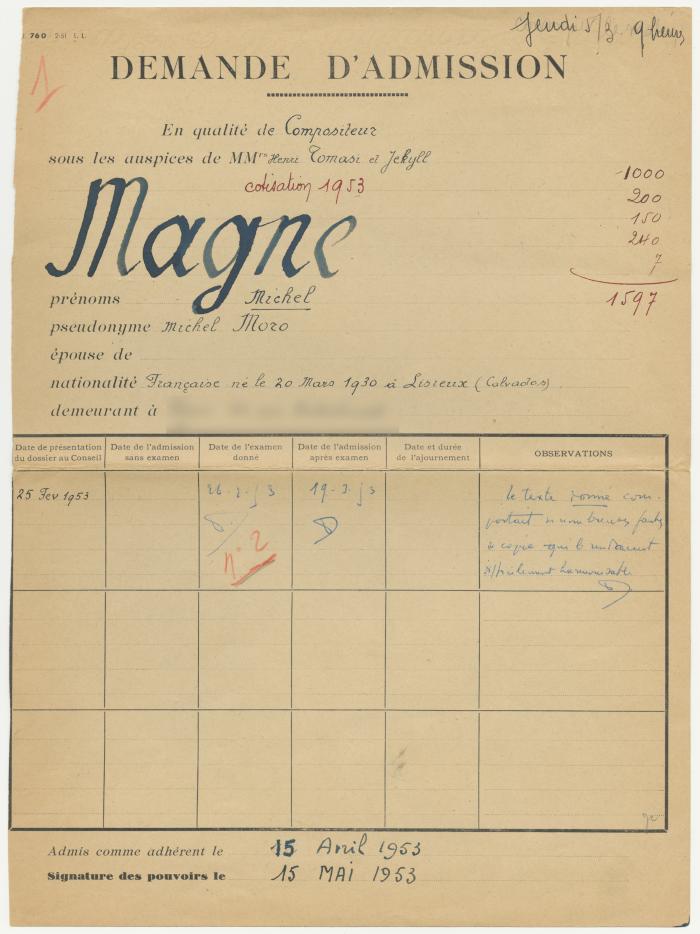 760 2-51 L. L.
Jeudi 5/3 9 heures
1
DEMANDE D'ADMISSION
En qualité de Compositeur
sous les auspices de MMrs Henri Tomasi et Jekyll
cotisation 1953
1000
200
150
240
7
1597
Magne
prénoms Michel
pseudonyme Michel Moro
épouse de
nationalité Française né le 20 Mars 1930 à Lisieux (Calvados)
demeurant à
Date de présentation du dossier au Conseil
Date de l'admission sans examen
Date de l'examen donné
Date de l'admission après examen
Date et durée de l'ajournement
OBSERVATIONS
25 Fev 1953
26.2.53
19.3.53
n° 2
le texte donné com-
portait de nombreuses fautes
de copie qui le rendaient
difficilement harmonisable
Admis comme adhérent le 15 Avril 1953
Signature des pouvoirs le 15 MAI 1953